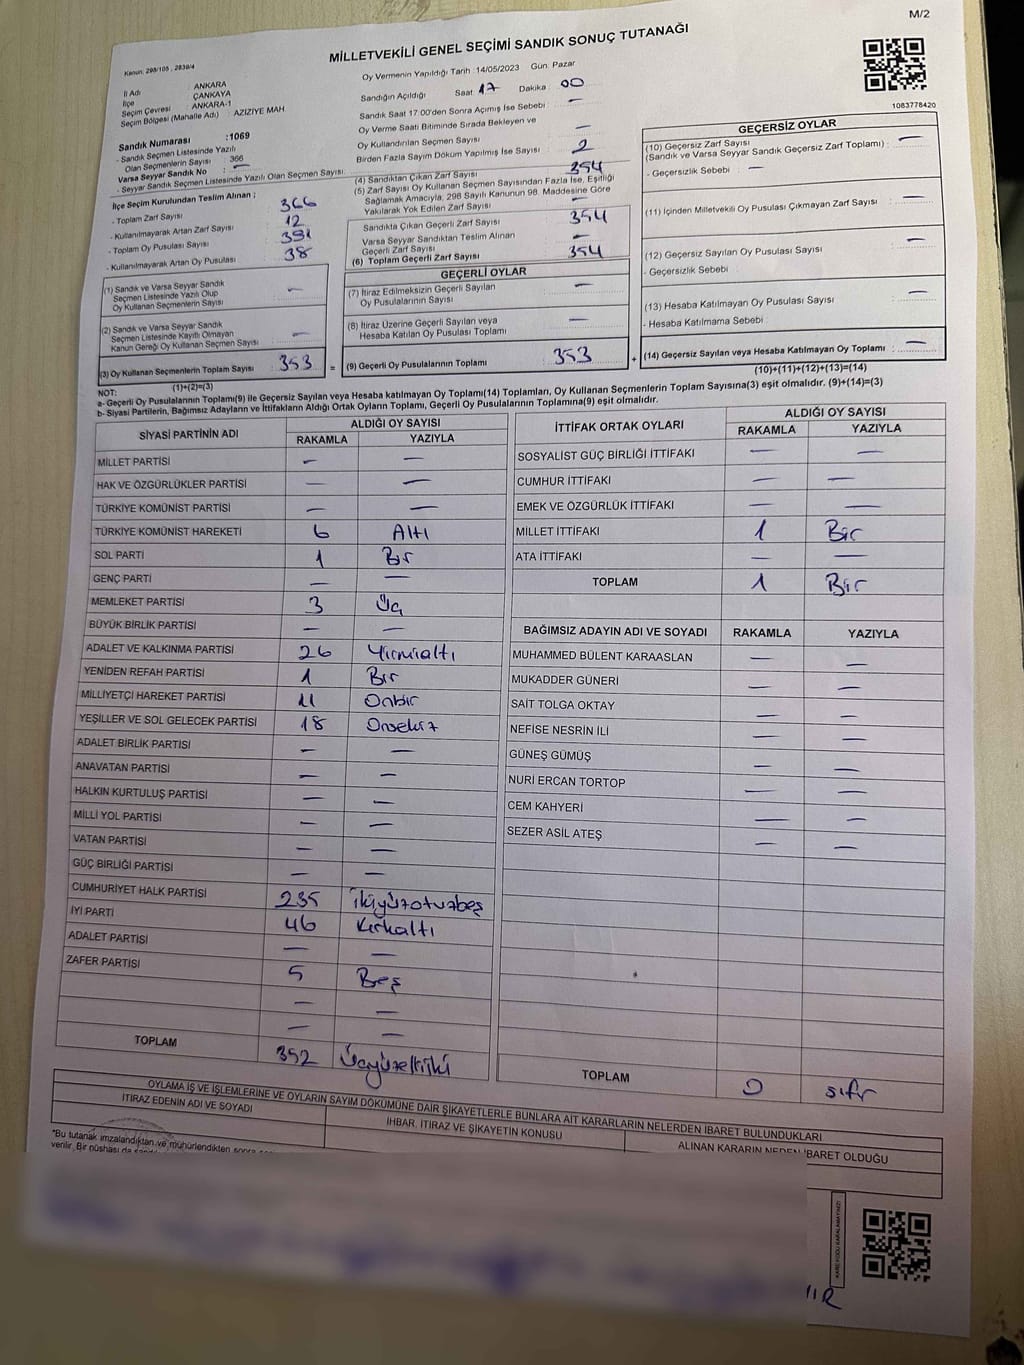 M/2
MİLLETVEKİLİ GENEL SEÇİMİ SANDIK SONUÇ TUTANAĞI
Kanun: 298/105 , 2839/4
İl Adı : ANKARA
İlçe : ÇANKAYA
Seçim Çevresi : ANKARA-1
Seçim Bölgesi (Mahalle Adı) : AZIZIYE MAH.
Sandık Numarası :1069
- Sandık Seçmen Listesinde Yazılı
Olan Seçmenlerin Sayısı : 366
Varsa Seyyar Sandık No : —
- Seyyar Sandık Seçmen Listesinde Yazılı Olan Seçmen Sayısı
İlçe Seçim Kurulundan Teslim Alınan ;
- Toplam Zarf Sayısı : 366
- Kullanılmayarak Artan Zarf Sayısı : 12
- Toplam Oy Pusulası Sayısı : 391
- Kullanılmayarak Artan Oy Pusulası : 38
(1) Sandık ve Varsa Seyyar Sandık
Seçmen Listesinde Yazılı Olup
Oy Kullanan Seçmenlerin Sayısı : —
(2) Sandık ve Varsa Seyyar Sandık
Seçmen Listesinde Kayıtlı Olmayan
Kanun Gereği Oy Kullanan Seçmen Sayısı : —
(3) Oy Kullanan Seçmenlerin Toplam Sayısı : 353
(1)+(2)=(3)
Oy Vermenin Yapıldığı Tarih :14/05/2023 Gün: Pazar
Sandığın Açıldığı Saat 17 Dakika 00
Sandık Saat 17:00'den Sonra Açılmış İse Sebebi : —
Oy Verme Saati Bitiminde Sırada Bekleyen ve
Oy Kullandırılan Seçmen Sayısı : —
Birden Fazla Sayım Döküm Yapılmış İse Sayısı : 2
(4) Sandıktan Çıkan Zarf Sayısı : 354
(5) Zarf Sayısı Oy Kullanan Seçmen Sayısından Fazla İse, Eşitliği
Sağlamak Amacıyla, 298 Sayılı Kanunun 98. Maddesine Göre
Yakılarak Yok Edilen Zarf Sayısı : —
Sandıkta Çıkan Geçerli Zarf Sayısı : 354
Varsa Seyyar Sandıktan Teslim Alınan
Geçerli Zarf Sayısı : —
(6) Toplam Geçerli Zarf Sayısı : 354
GEÇERLİ OYLAR
(7) İtiraz Edilmeksizin Geçerli Sayılan
Oy Pusulalarının Sayısı : —
(8) İtiraz Üzerine Geçerli Sayılan veya
Hesaba Katılan Oy Pusulası Toplamı : —
= (9) Geçerli Oy Pusulalarının Toplamı : 353 +
1083778420
GEÇERSİZ OYLAR
(10) Geçersiz Zarf Sayısı
(Sandık ve Varsa Seyyar Sandık Geçersiz Zarf Toplamı) : —
- Geçersizlik Sebebi : —
(11) İçinden Milletvekili Oy Pusulası Çıkmayan Zarf Sayısı : —
(12) Geçersiz Sayılan Oy Pusulası Sayısı : —
- Geçersizlik Sebebi :
(13) Hesaba Katılmayan Oy Pusulası Sayısı : —
- Hesaba Katılmama Sebebi :
(14) Geçersiz Sayılan veya Hesaba Katılmayan Oy Toplamı : —
(10)+(11)+(12)+(13)=(14)
NOT:
a- Geçerli Oy Pusulalarının Toplamı(9) ile Geçersiz Sayılan veya Hesaba katılmayan Oy Toplamı(14) Toplamları, Oy Kullanan Seçmenlerin Toplam Sayısına(3) eşit olmalıdır. (9)+(14)=(3)
b- Siyasi Partilerin, Bağımsız Adayların ve İttifakların Aldığı Ortak Oyların Toplamı, Geçerli Oy Pusulalarının Toplamına(9) eşit olmalıdır.
SİYASİ PARTİNİN ADI ALDIĞI OY SAYISI
RAKAMLA YAZIYLA
MİLLET PARTİSİ — —
HAK VE ÖZGÜRLÜKLER PARTİSİ — —
TÜRKİYE KOMÜNİST PARTİSİ — —
TÜRKİYE KOMÜNİST HAREKETİ 6 Altı
SOL PARTİ 1 Bir
GENÇ PARTİ — —
MEMLEKET PARTİSİ 3 Üç
BÜYÜK BİRLİK PARTİSİ — —
ADALET VE KALKINMA PARTİSİ 26 Yirmialtı
YENİDEN REFAH PARTİSİ 1 Bir
MİLLİYETÇİ HAREKET PARTİSİ 11 Onbir
YEŞİLLER VE SOL GELECEK PARTİSİ 18 Onsekiz
ADALET BİRLİK PARTİSİ — —
ANAVATAN PARTİSİ — —
HALKIN KURTULUŞ PARTİSİ — —
MİLLİ YOL PARTİSİ — —
VATAN PARTİSİ — —
GÜÇ BİRLİĞİ PARTİSİ — —
CUMHURİYET HALK PARTİSİ 235 İkiyüzotuzbeş
İYİ PARTİ 46 Kırkaltı
ADALET PARTİSİ — —
ZAFER PARTİSİ 5 Beş
— —
— —
TOPLAM 352 Üçyüzelliiki
İTTİFAK ORTAK OYLARI ALDIĞI OY SAYISI
RAKAMLA YAZIYLA
SOSYALİST GÜÇ BİRLİĞİ İTTİFAKI — —
CUMHUR İTTİFAKI — —
EMEK VE ÖZGÜRLÜK İTTİFAKI — —
MİLLET İTTİFAKI 1 Bir
ATA İTTİFAKI — —
TOPLAM 1 Bir
BAĞIMSIZ ADAYIN ADI VE SOYADI RAKAMLA YAZIYLA
MUHAMMED BÜLENT KARAASLAN — —
MUKADDER GÜNERİ — —
SAİT TOLGA OKTAY — —
NEFİSE NESRİN İLİ — —
GÜNEŞ GÜMÜŞ — —
NURİ ERCAN TORTOP — —
CEM KAHYERİ — —
SEZER ASİL ATEŞ — —
TOPLAM 0 sıfır
OYLAMA İŞ VE İŞLEMLERİNE VE OYLARIN SAYIM DÖKÜMÜNE DAİR ŞİKAYETLERLE BUNLARA AİT KARARLARIN NELERDEN İBARET BULUNDUKLARI
İTİRAZ EDENİN ADI VE SOYADI İHBAR, İTİRAZ VE ŞİKAYETİN KONUSU ALINAN KARARIN NEDEN İBARET OLDUĞU
"Bu tutanak imzalandıktan ve mühürlendikten sonra
verilir. Bir nüshası da
KARE KODU KARALAMAYINIZ!